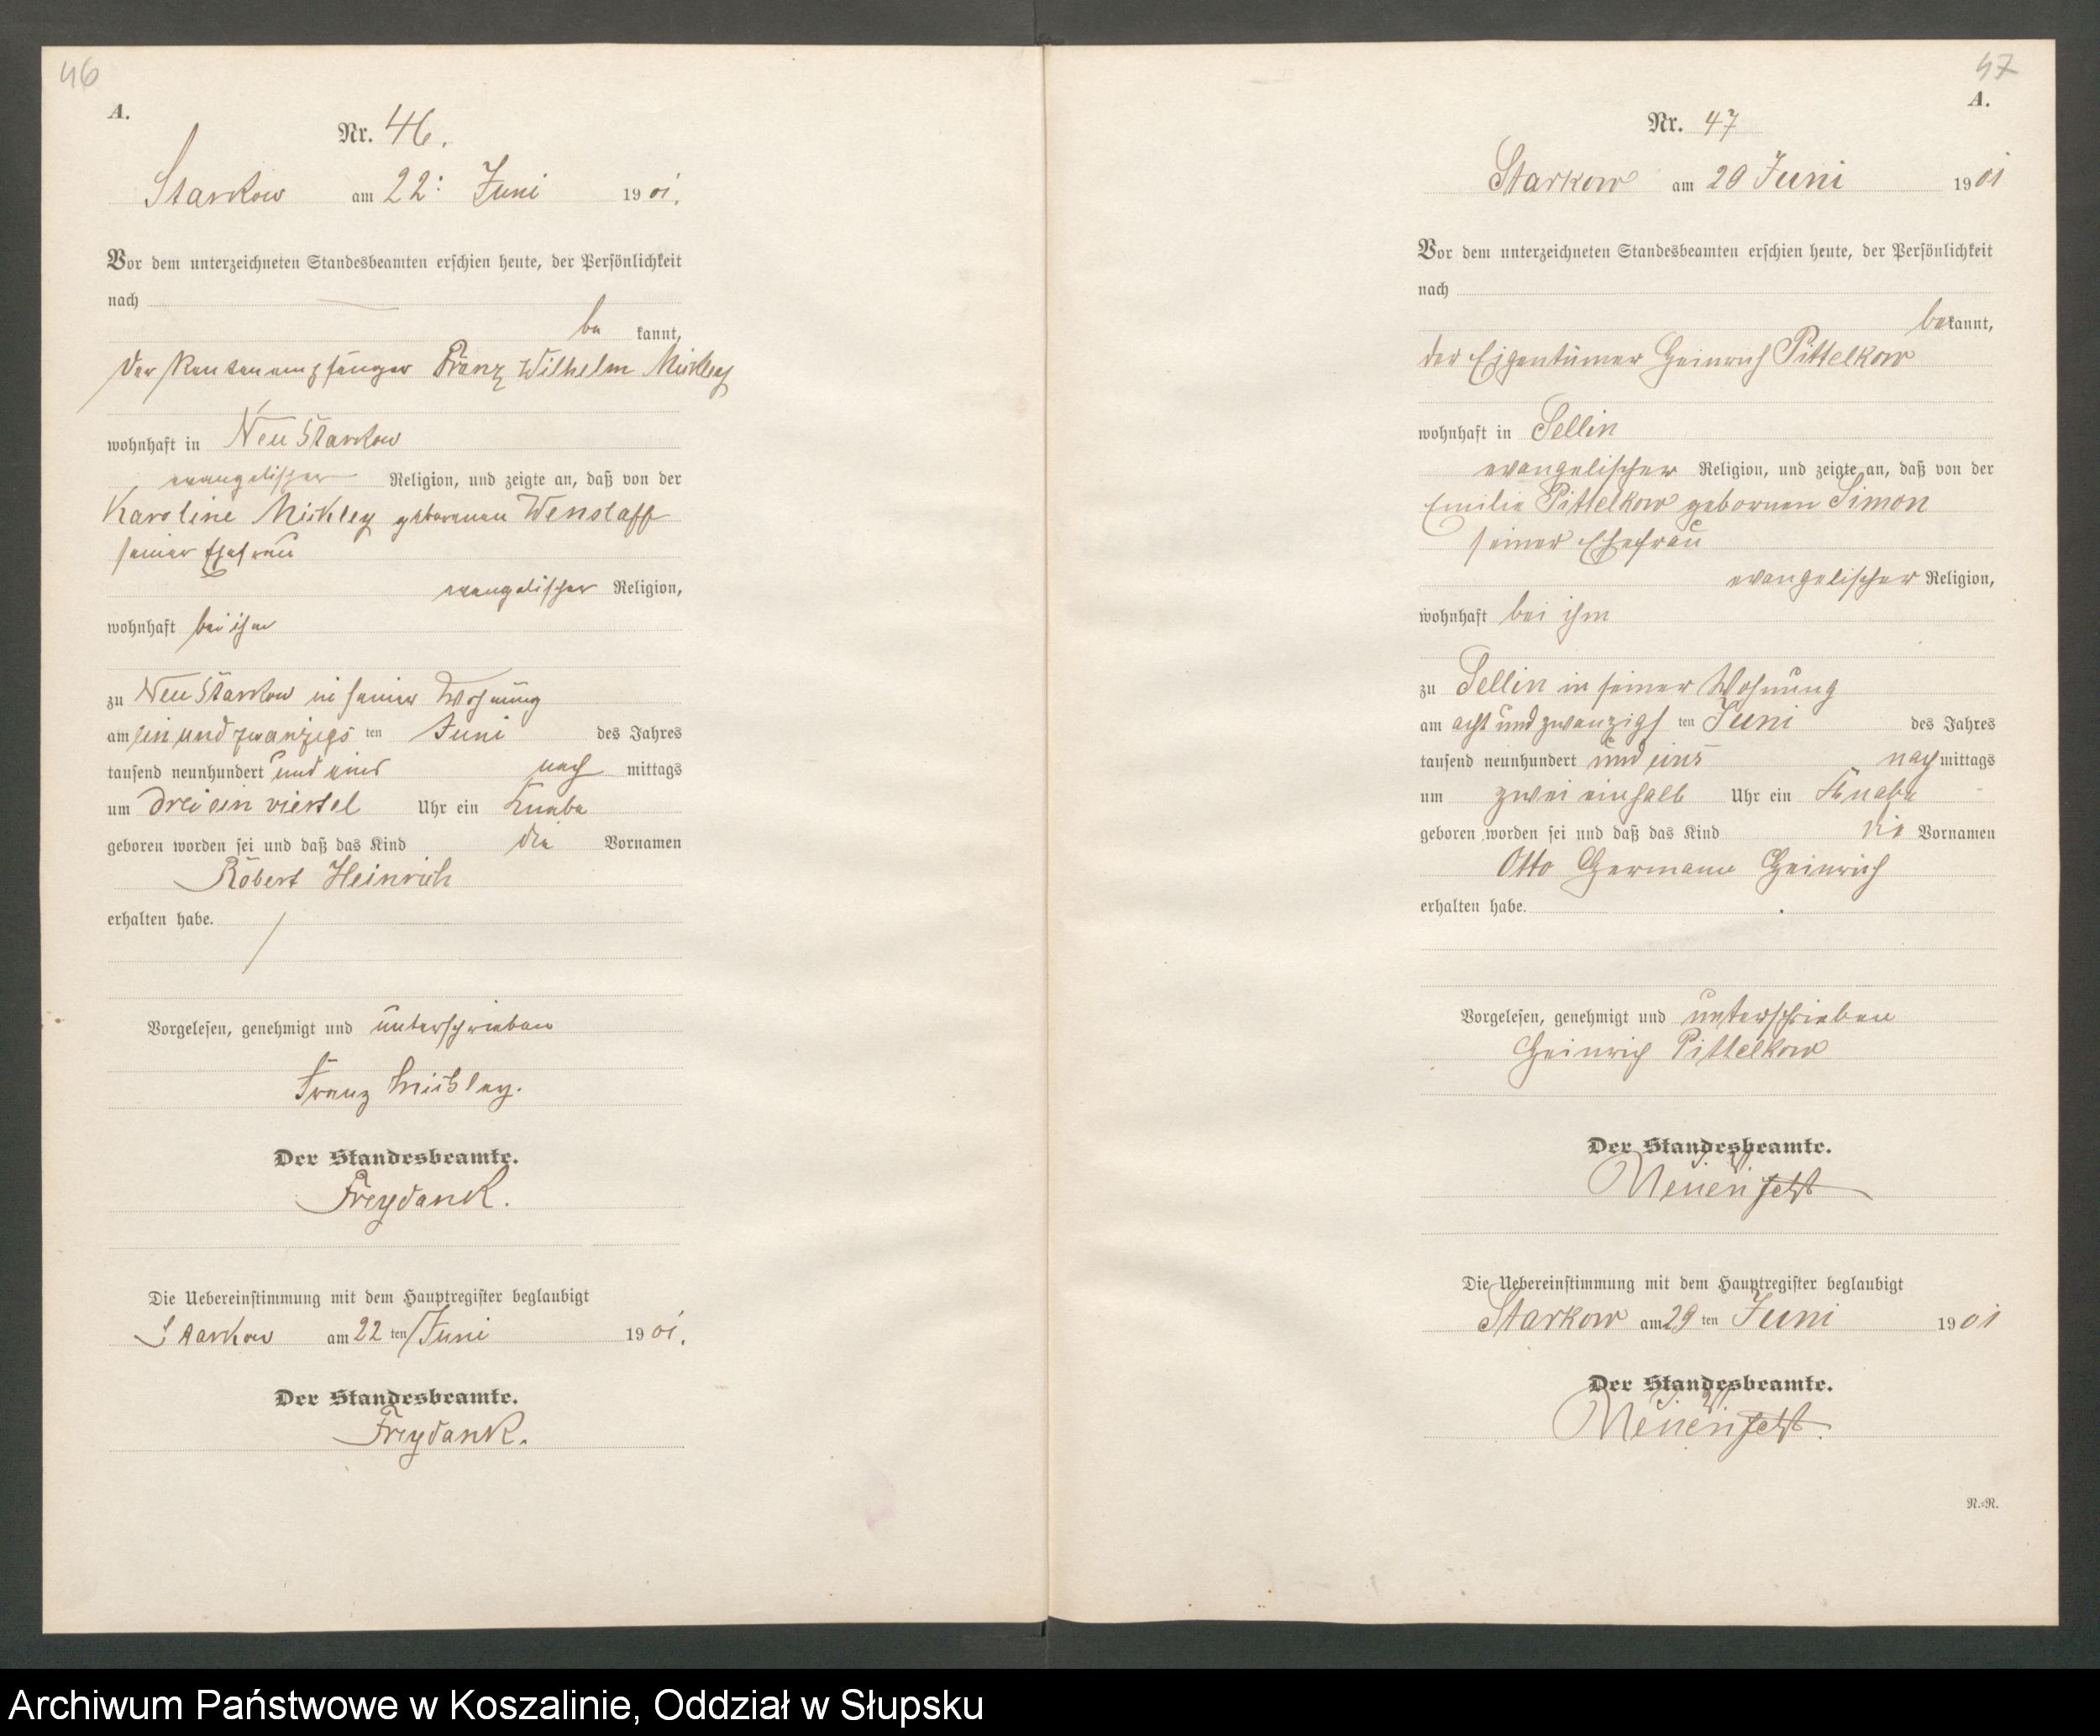 46
A.
Nr. 46.
Starkow am 22. Juni 1901.
Vor dem unterzeichneten Standesbeamten erschien heute, der Persönlichkeit
nach
be kannt,
der Rentenempfänger Franz Wilhelm Mickley
wohnhaft in Neu Starkow
evangelischer Religion, und zeigte an, daß von der
Karoline Mickley geborenen Wenslaff
seiner Ehefrau
evangelischer Religion,
wohnhaft bei ihm
zu Neu Starkow in seiner Wohnung
am ein und zwanzigs ten Juni des Jahres
tausend neunhundert und eins nach mittags
um drei ein viertel Uhr ein Knabe
geboren worden sei und daß das Kind die Vornamen
Robert Heinrich
erhalten habe.
Vorgelesen, genehmigt und unterschrieben
Franz Mickley.
Der Standesbeamte.
Freydank.
Die Uebereinstimmung mit dem Hauptregister beglaubigt
Starkow am 22 ten Juni 1901.
Der Standesbeamte.
Freydank.
47
A.
Nr. 47
Starkow am 29 Juni 1901
Vor dem unterzeichneten Standesbeamten erschien heute, der Persönlichkeit
nach
bekannt,
der Eigentümer Heinrich Pittelkow
wohnhaft in Sellin
evangelischer Religion, und zeigte an, daß von der
Emilie Pittelkow gebornen Simon
seiner Ehefrau
evangelischer Religion,
wohnhaft bei ihm
zu Sellin in seiner Wohnung
am acht und zwanzigs ten Juni des Jahres
tausend neunhundert und eins nach mittags
um zwei einhalb Uhr ein Knabe
geboren worden sei und daß das Kind die Vornamen
Otto Hermann Heinrich
erhalten habe.
Vorgelesen, genehmigt und unterschrieben
Heinrich Pittelkow
Der Standesbeamte.
Die Uebereinstimmung mit dem Hauptregister beglaubigt
Starkow am 29 ten Juni 1901
Der Standesbeamte.
N.=N.
Archiwum Państwowe w Koszalinie, Oddział w Słupsku